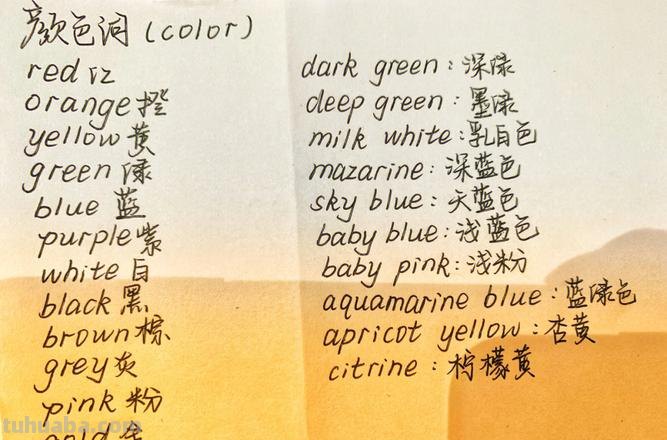 颜色词 (color)
red 红
orange 橙
yellow 黄
green 绿
blue 蓝
purple 紫
white 白
black 黑
brown 棕
grey 灰
pink 粉
gold
dark green : 深绿
deep green : 墨绿
milk white : 乳白色
mazarine : 深蓝色
sky blue : 天蓝色
baby blue : 浅蓝色
baby pink : 浅粉
aquamarine blue : 蓝绿色
apricot yellow : 杏黄
citrine : 柠檬黄
tuhuaba.com